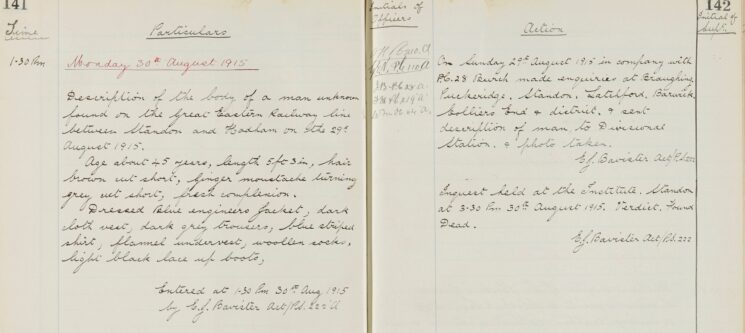 141
Time
Particulars
1-30 Pm
Monday 30th August 1915
Description of the body of a man unknown
found on the Great Eastern Railway line
between Standon and Hadham on the 29th
August 1915.
Age about 45 years, length 5ft 3in, hair
brown cut short, ginger moustache turning
grey cut short, fresh complexion.
Dressed Blue engineers Jacket, dark
cloth vest, dark grey trousers, blue striped
shirt, flannel undervest, woollen socks,
light black lace up boots,
Entered at 1-30 Pm 30th Aug 1915
by E.J. Bavister Act/Pd. 222 A
Initials of
Officers
142
Action
Initial of
Supt.
On Sunday 29th August 1915 in company with
P.C. 28 Burch made enquiries at Braughing,
Puckeridge, Standon, Latchford, Barwick,
Colliers End & district, & sent
description of man to Divisional
Station. & photo taken.
E.J. Bavister
Inquest held at the Institute, Standon
at 3-30 Pm 30th August 1915. Verdict. Found
Dead.
E.J. Bavister Act/Pd. 222